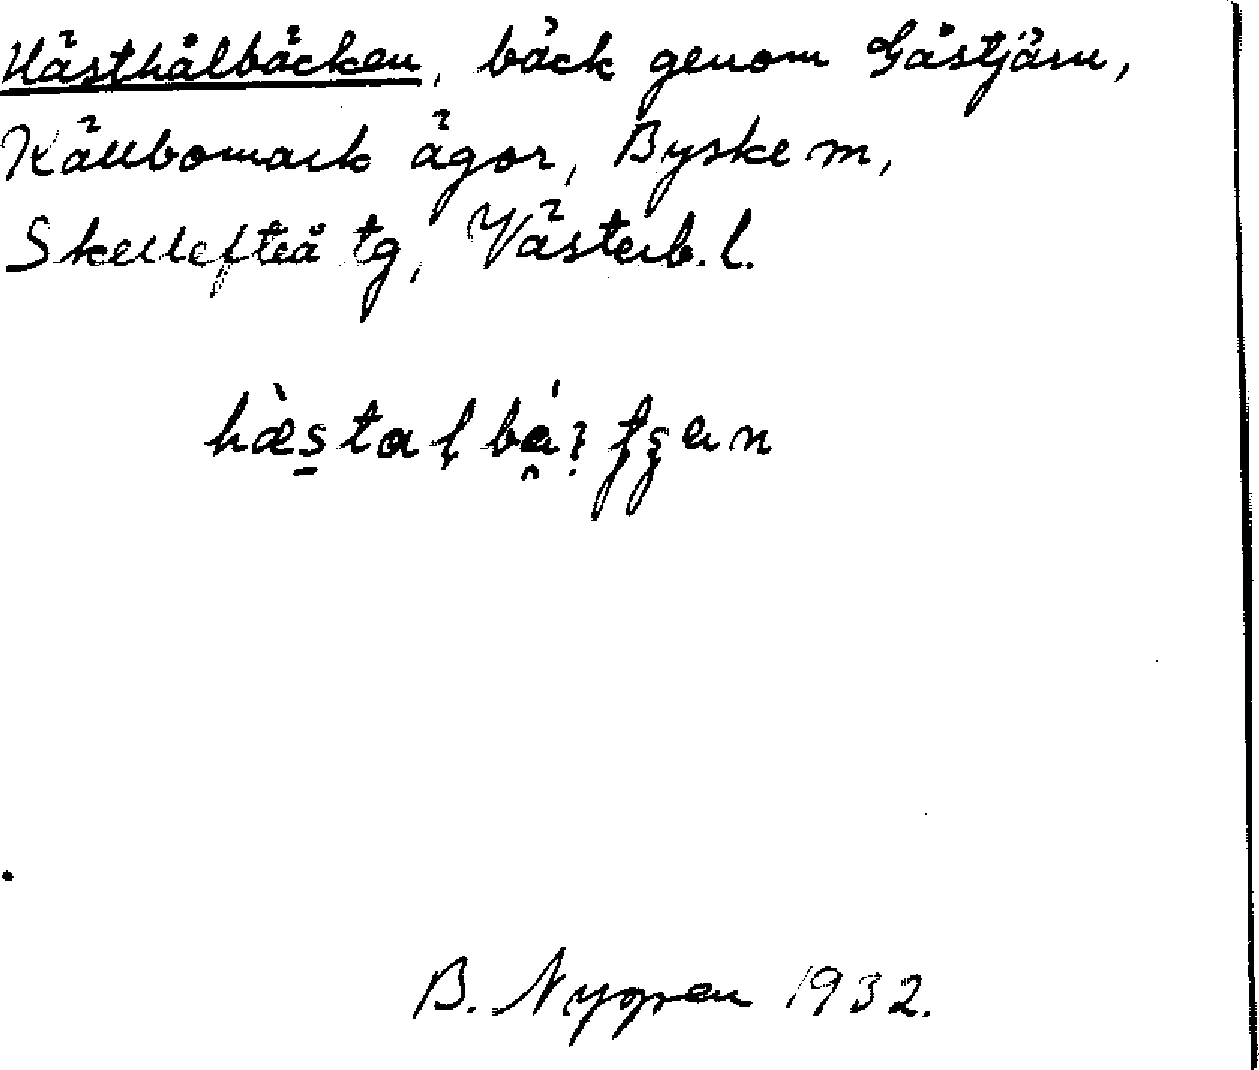 Hästhålbäcken, bäck genom Gåstjärn,
Källbomark ägor, Byske sn,
Skellefteå tg, Västerb. l.
B. Nygren 1932.